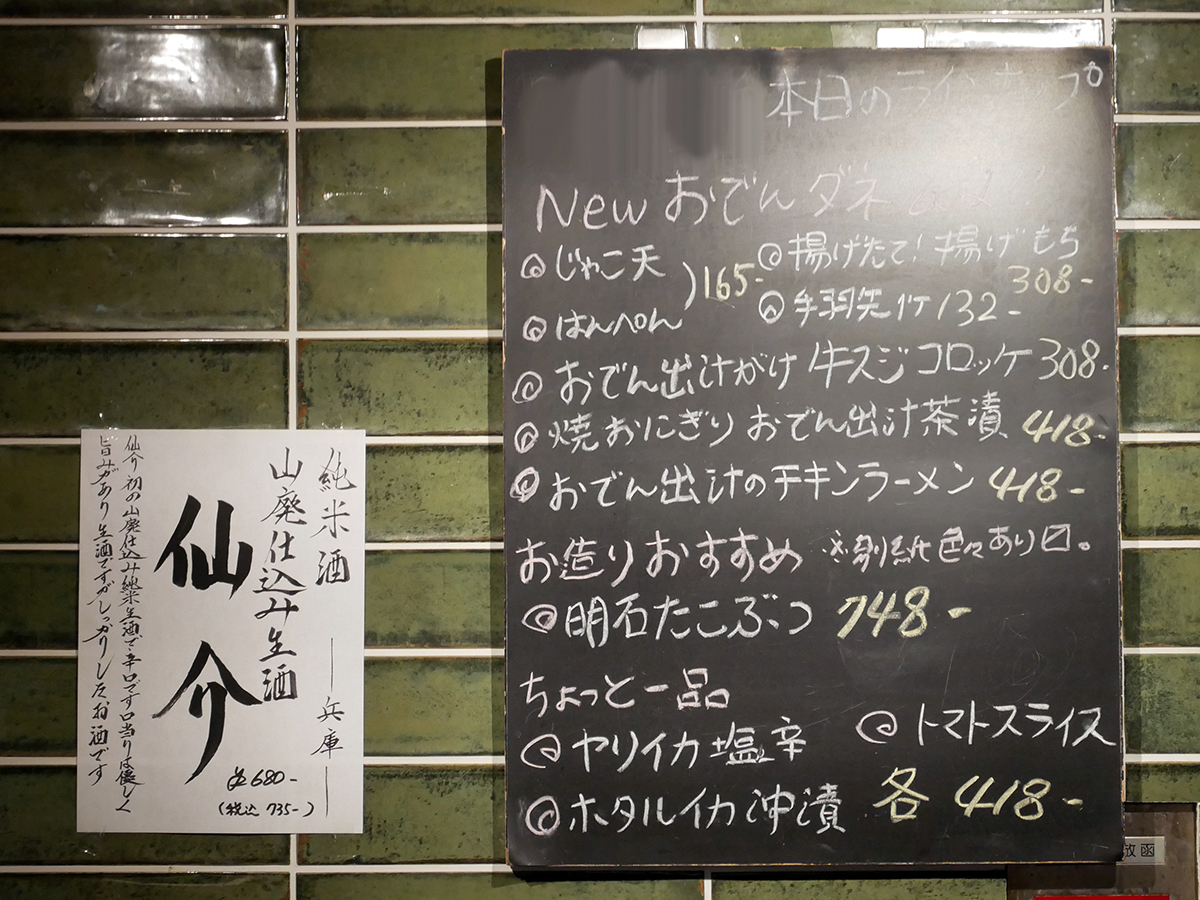 本日のラインナップ
New おでんダネ
じゃこ天
はんぺん
165-
揚げたて！揚げもち
308-
手羽先 1ケ 132-
おでん出汁がけ 牛スジコロッケ 308-
焼おにぎり おでん出汁茶漬 418-
おでん出汁のチキンラーメン 418-
お造りおすすめ ※別紙色々あり〼。
明石たこぶつ 748-
ちょっと一品
ヤリイカ塩辛
トマトスライス
ホタルイカ沖漬
各 418-
純米酒 ―兵庫―
山廃仕込み生酒
仙介
仙介 初の山廃仕込み純米生酒で辛口です口当りは優しく
旨みがあり 生酒ですがしっかりしたお酒です
680-
(税込 735-)
放函